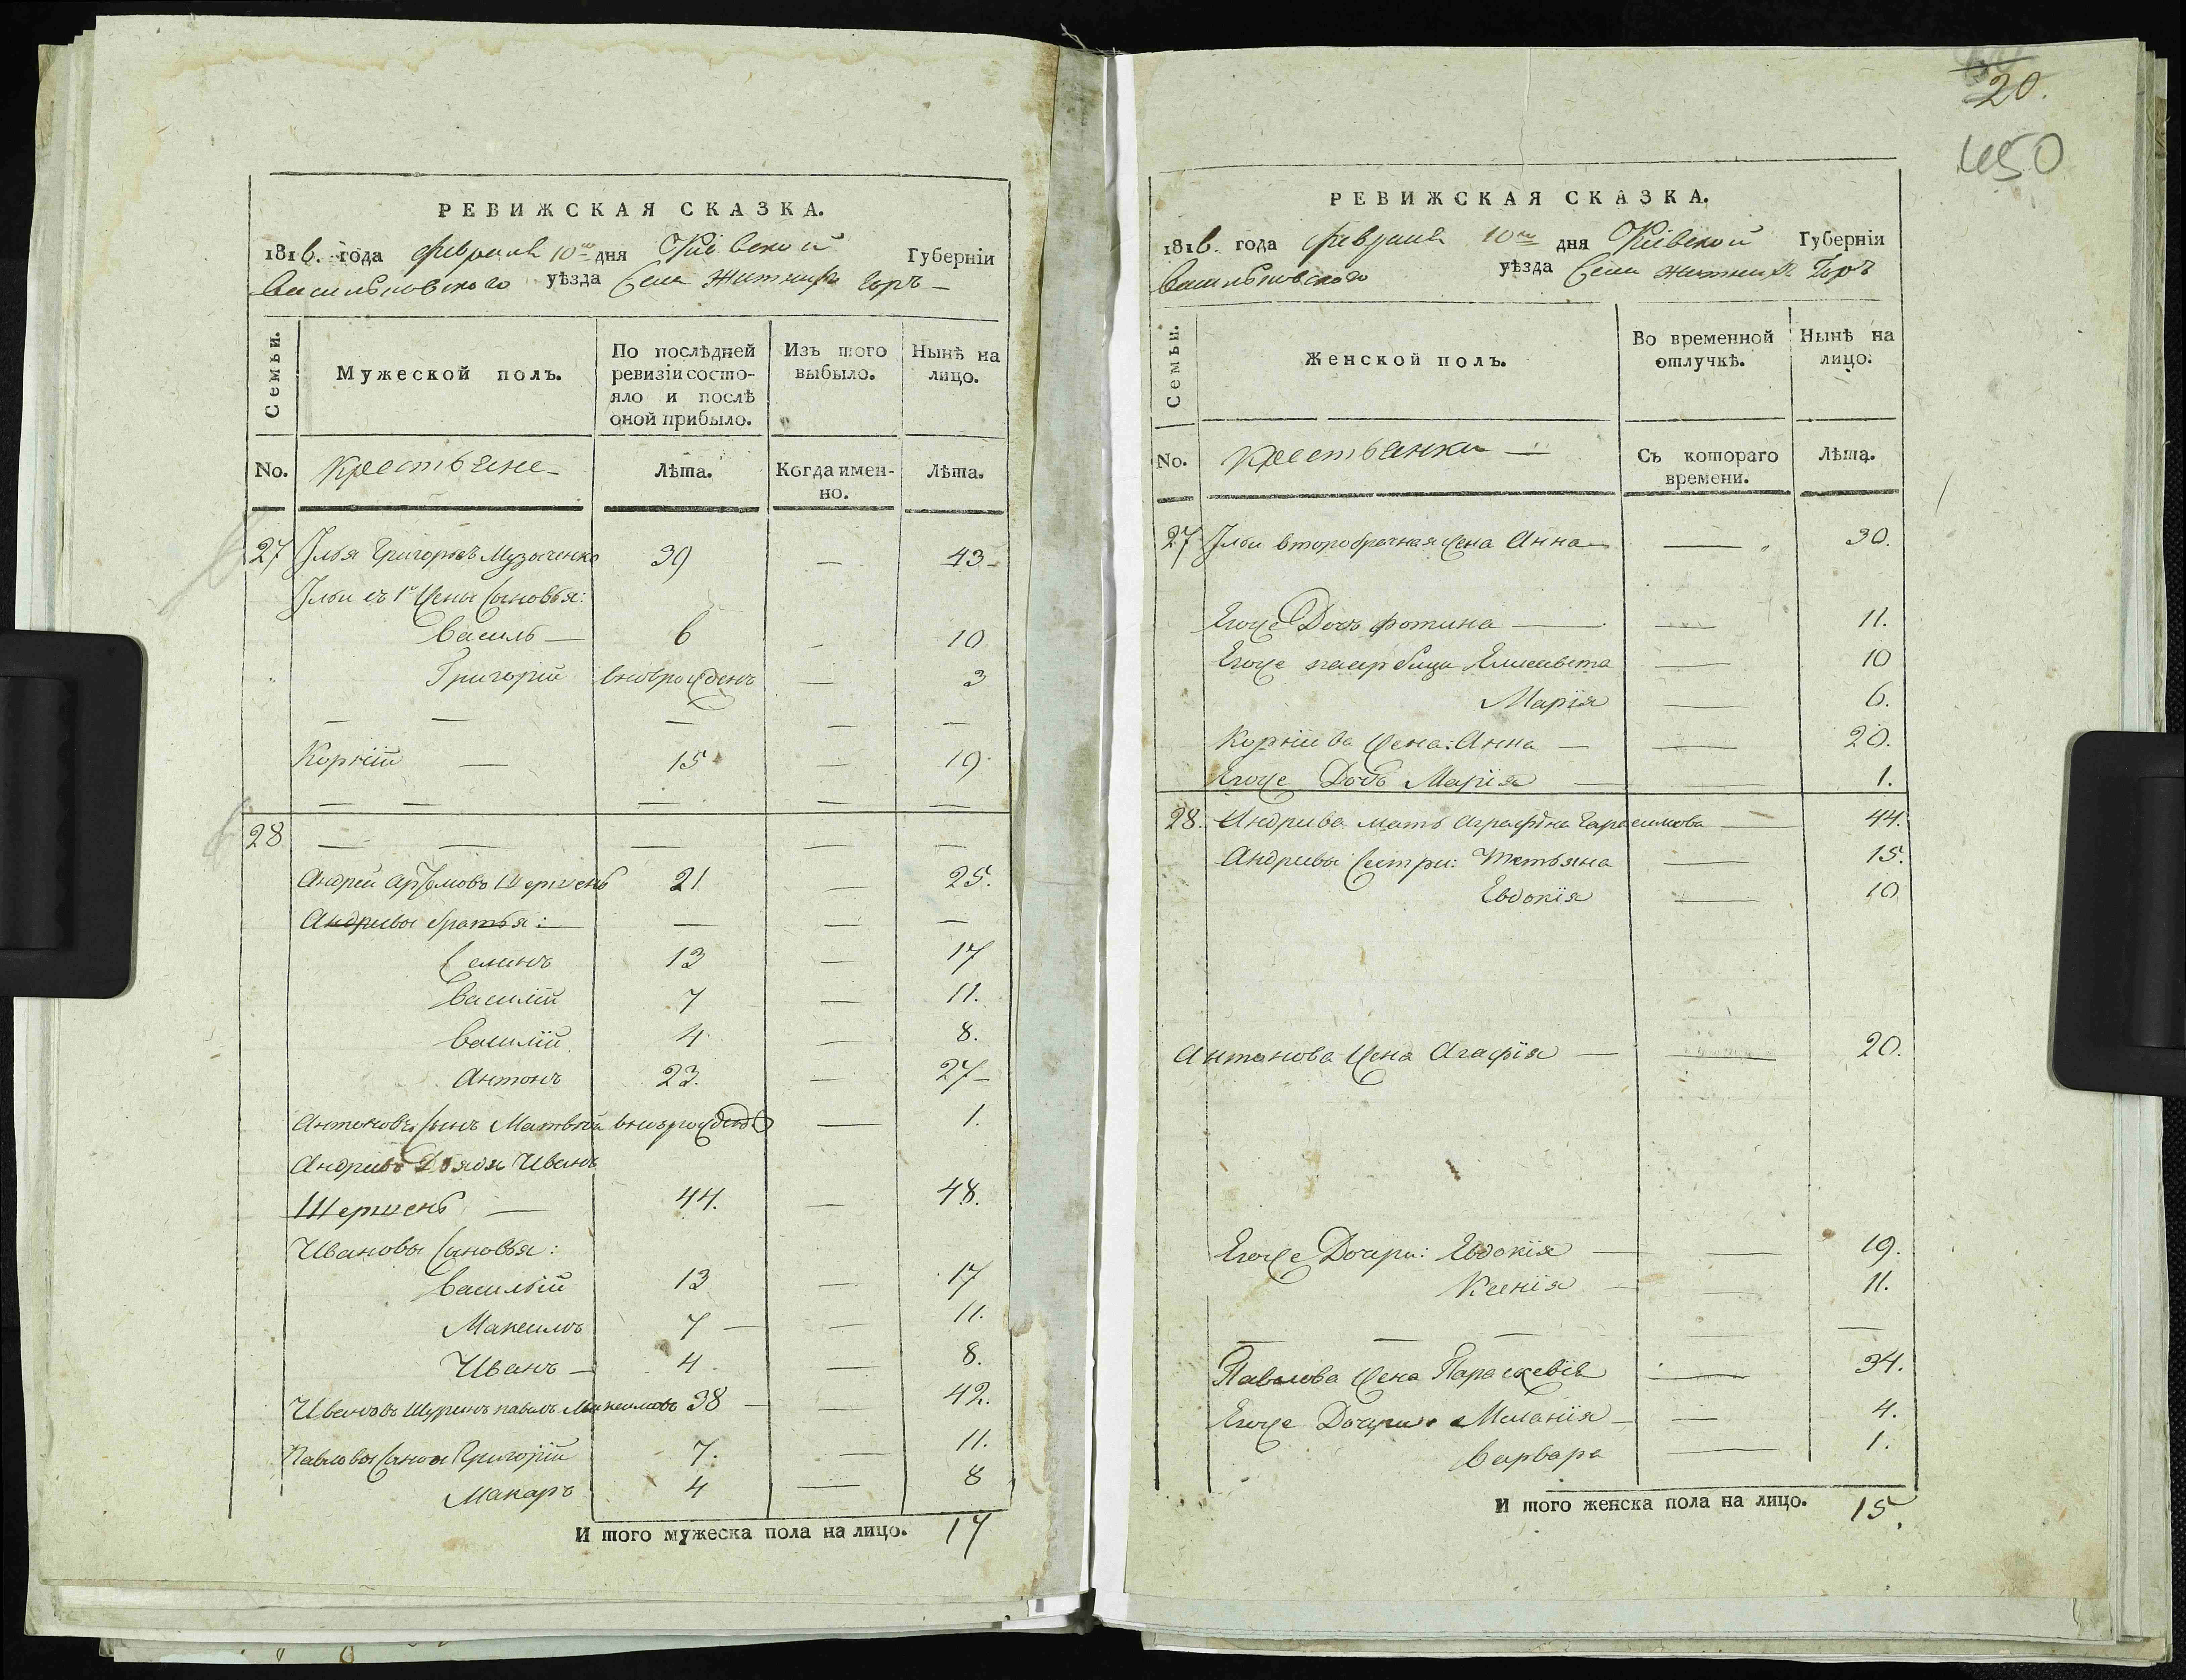 РЕВИЖСКАЯ СКАЗКА.
1816. года февраля 10го дня Киевской Губерніи
Васильковского уѣзда Села Житнихъ Горъ —
Семьи.
Мужеской полъ.
По послѣдней ревизіи состояло и послѣ оной прибыло.
Изъ того выбыло.
Нынѣ на лицо.
No. Крестьяне Лѣта. Когда именно. Лѣта.
27 Илья Григорьевъ Музыченко 39 — 43
Ильи съ 1й жены сыновья:
Василь — 6 — 10
Григорій вновьрожденъ — 3
— — — — —
Корнѣй — 15 — 19
— — — — —
28 — — — — —
Андрей Шершень 21 — 25.
Андреевы братья: — — — —
Семенъ 13 — 17
Василій 7 — 11.
Василій 4 — 8.
Антонъ 23. — 27
Антоновъ сынъ Матвѣй вновьрожденъ — 1.
Андреевъ Дядя Иванъ
Шершень — 44. — 48.
Ивановы сыновья:
Василій 13 — 17
Максимъ 7 — — 11.
Иванъ — 4 — 8.
Ивановъ Шуринъ Павелъ Максимовъ 38 — — 42.
Павловы сыны Григорій 7. — 11.
Макаръ 4 — 8
И того мужеска пола на лицо. 17
20.
450
РЕВИЖСКАЯ СКАЗКА.
1816. года февраля 10го дня Киевской Губерніи
Васильковского уѣзда Села Житнихъ Горъ
Семьи.
Женской полъ.
Во временной отлучкѣ.
Нынѣ на лицо.
No. Крестьянки — Съ котораго времени. Лѣта.
27 Ильи второбрачная жена Анна — — 30.
Егоже Дочь Фотина — — 11.
Егоже падчерица Елисавета — 10
Марія — 6.
Корнѣева жена: Анна — — 20.
Егоже Дочь Марія — — 1.
28. Андреева мать Аграфѣна Герасимова — 44.
Андреевы сестры: Татьяна — 15.
Евдокія — 10
Антонова жена Агафія — — 20.
Егоже Дочери: Евдокія — — 19.
Ксенія — — 11.
— — — — —
Павлова жена Параскевія — 34.
Егоже Дочери: Меланія — — 4.
Варвара — 1.
И того женска пола на лицо. 15.